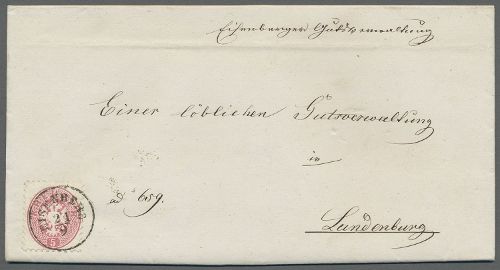 Eisenberger Gutsverwaltung
Einer löblichen Gutsverwaltung
in
659.
Lundenburg
EISENBERG
21
9
5